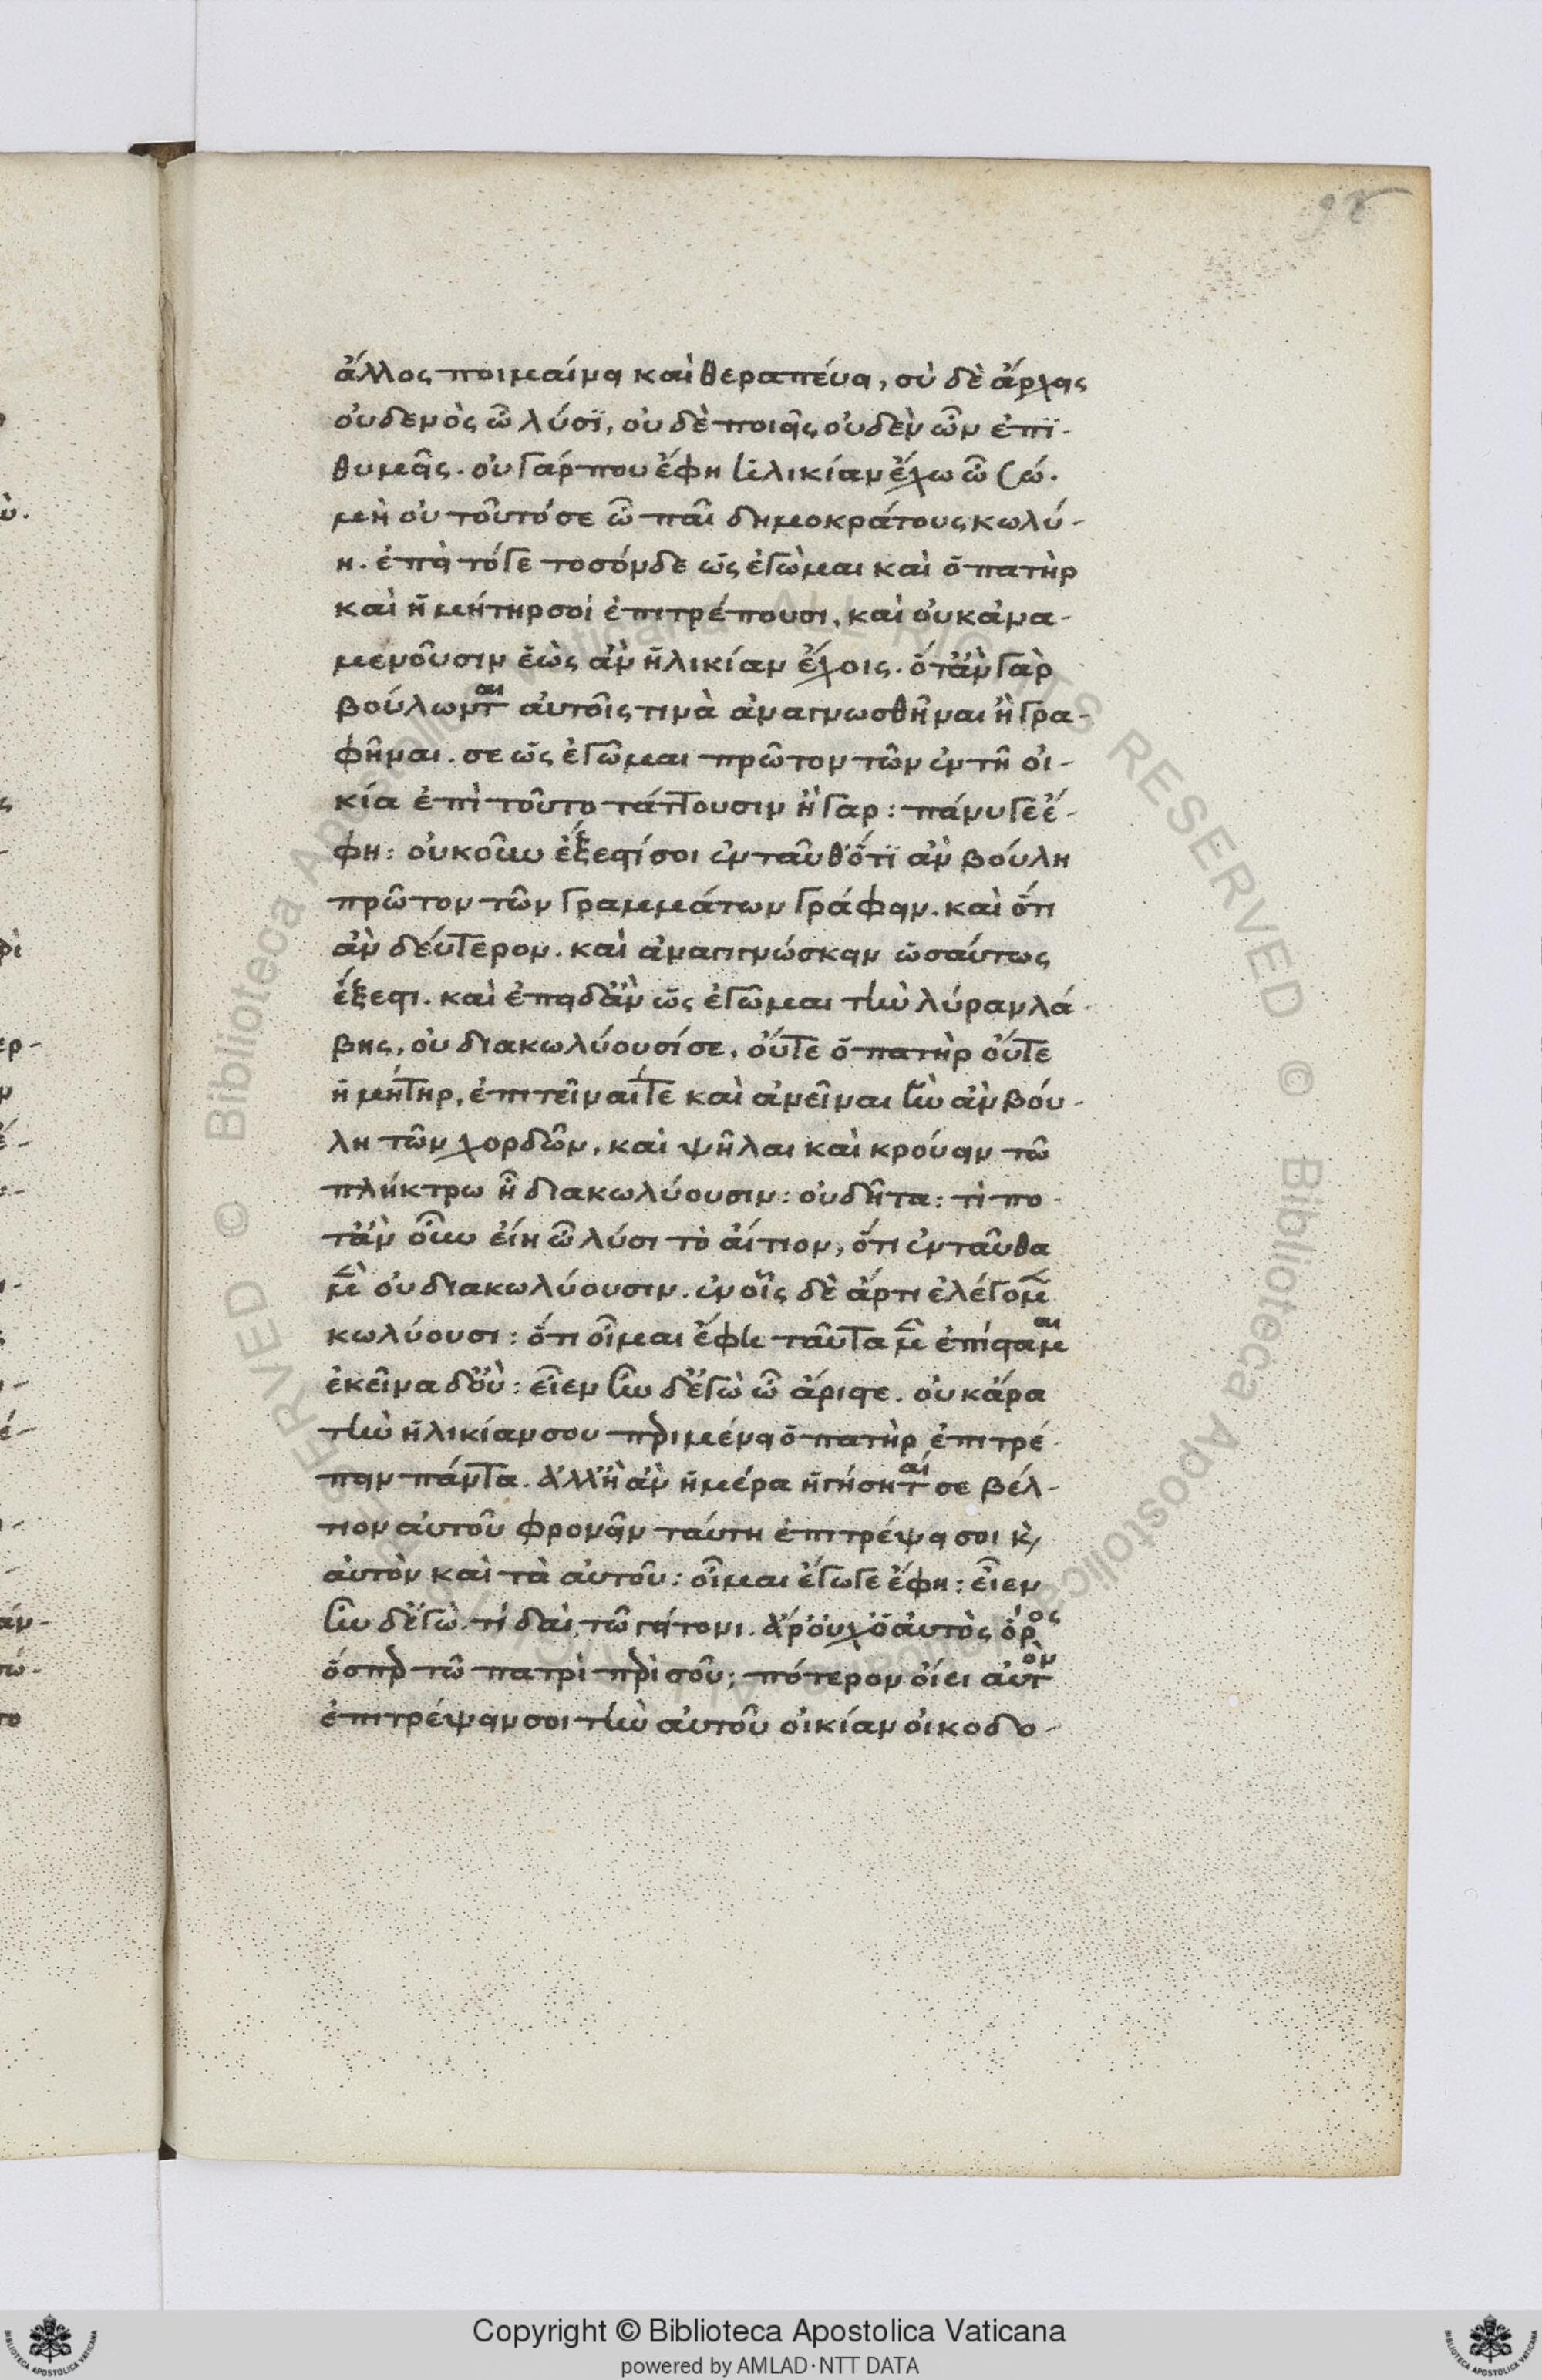 ἄλλος ποιμαίνει καὶ θεραπεύει, σὺ δὲ ἄρχεις
οὐδενὸς ὦ λύσϊ, οὐδὲ ποιεῖς οὐδὲν ὧν ἐπϊ-
θυμεῖς. οὐ γάρ που ἔφη ἡλικίαν ἔχω ὦ σώ.
μὴ οὐ τοῦτό σε ὦ παῖ δημοκράτους κωλύ-
η. ἐπεὶ τόγε τοσόνδε ὡς ἐγὦμαι καὶ ὁ πατὴρ
καὶ ἡ μήτηρ σοὶ ἐπιτρέπουσι, καὶ οὐκ ἀνα-
μενοῦσιν ἕως ἀν ἡλικίαν ἔχοις. ὅτἀν γὰρ
βούλωνται αὐτοῖς τινὰ ἀναγνωσθῆναι ἢ γρα-
φῆναι. σε ὡς ἐγὦμαι πρῶτον τῶν ἐν τῆ οἰ-
κία ἐπὶ τοῦτο τάττουσιν ἢ γαρ: πάνυ γε ἔ-
φη: οὐκοῦν ἔξεστί σοι ἐνταῦθ' ὅτϊ ἀν βούλη
πρῶτον τῶν γραμμάτων γράφειν. καὶ ὅτι
ἀν δεύτερον. καὶ ἀναγιγνώσκειν ὡσαύτως
ἔξεστι. καὶ ἐπειδἀν ὡς ἐγὦμαι τὴν λύραν λά-
βης, οὐ διακωλύουσί σε, οὔτε ὁ πατὴρ οὔτε
ἡ μήτηρ, ἐπιτεῖναί τε καὶ ἀνεῖναι ἣν ἀν βού-
λη τῶν χορδῶν, καὶ ψῆλαι καὶ κρούειν τῶ
πλήκτρω ἢ διακωλύουσιν: οὐδῆτα: τὶ πο-
τἀν οὖν εἴη ὦ λύσι τὸ αἴτιον, ὅτι ἐνταῦθα
μὲν οὐ διακωλύουσιν. ἐν οἷς δὲ ἄρτι ἐλέγομεν
κωλύουσι: ὅτι οἶμαι ἔφη ταῦτα μὲν ἐπίσταμαι
ἐκεῖνα δ' οὔ: εἶεν ἦν δ' ἐγὼ ὦ ἄριστε. οὐκ ἄρα
τὴν ἡλικίαν σου περιμένει ὁ πατὴρ ἐπιτρέ-
πειν πάντα. ἀλλ' ἧ ἀν ἡμέρα ἡγήσηταί σε βέλ-
τιον αὐτοῦ φρονεῖν ταύτη ἐπιτρέψει σοι κ̀
αὐτὸν καὶ τὰ αὐτοῦ: οἶμαι ἔγωγε ἔφη: εἶεν
ἦν δ' ἐγὼ. τί δαὶ τῶ γείτονι. ἆρ' οὐχ ὁ αὐτὸς ὅρος
ὅσπερ τῶ πατρὶ περὶ σοῦ; πότερον οἴει αὐτὸν
ἐπιτρέψειν σοι τὴν αὐτοῦ οἰκίαν οἰκοδο-
Copyright © Biblioteca Apostolica Vaticana
powered by AMLAD·NTT DATA